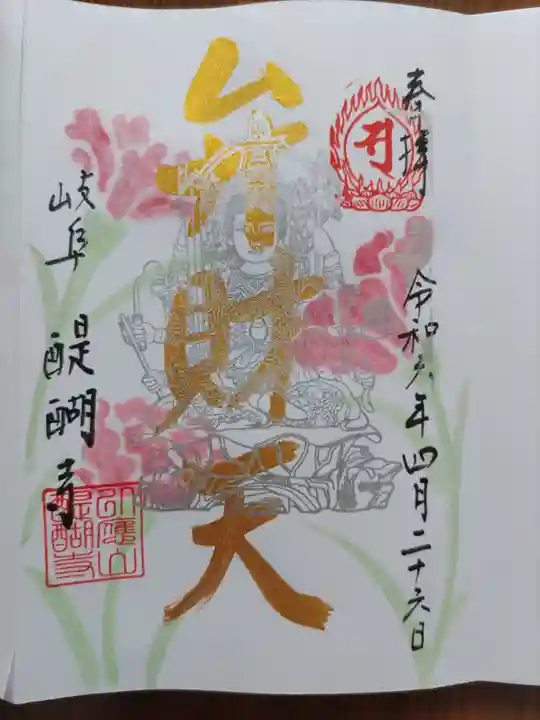 奉拝
令和六年四月二十六日
弁財天
岐阜 醍醐寺
醍醐寺